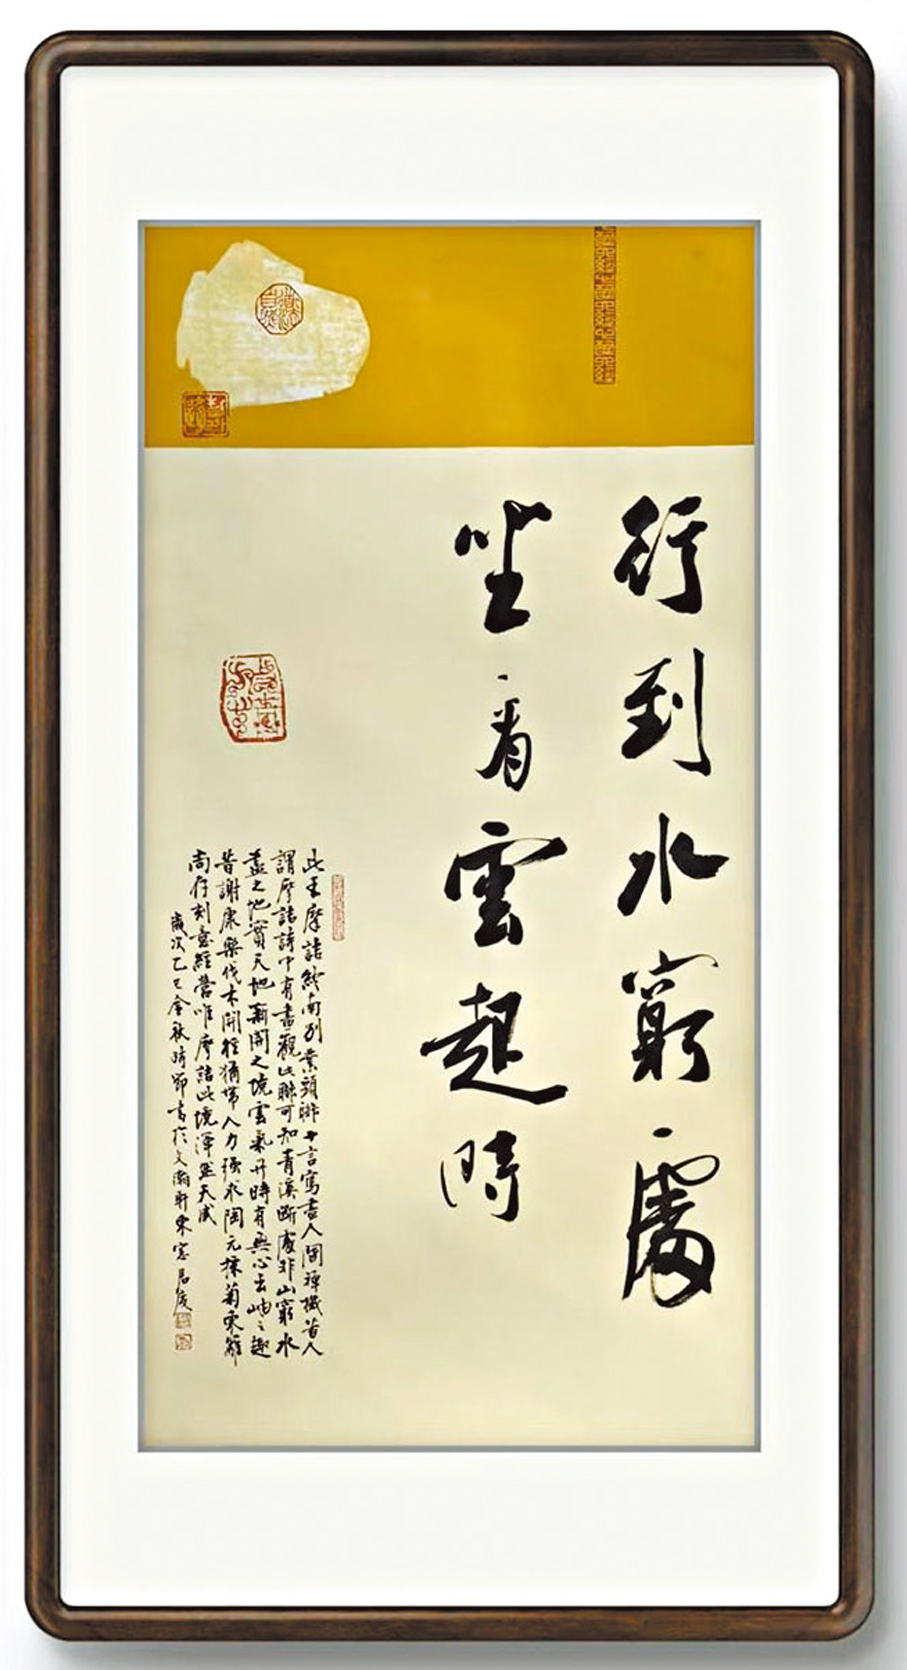 行到水窮處
坐看雲起時
此王摩詰終南別業頸聯十言寫盡人間禪機昔人
謂摩詰詩中有畫觀此聯可知青溪斷處非山窮水
盡之地實天地新開之境雲氣升時有無心去岫之趣
昔謝康樂伐木開徑猶帶人力強求陶元採菊東籬
尚存刻意經營唯摩詰此境渾然天成
歲次乙巳金秋時節書於文瀚軒東窗